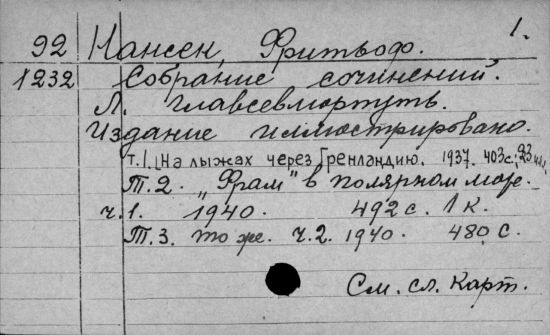 1.
92 Нансен, Фритьоф.
1232 Собрание сочинений.
Л. Главсевморпуть.
Издание иллюстрировано.
т.1. На лыжах через Гренландию. 1937. 403 с.; 23 илл.
Т.2. „Фрам" в полярном море.
ч.1. 1940. 492 с. 1 к.
Т.3. то же. ч.2. 1940. 480 с.
См. сл. карт.